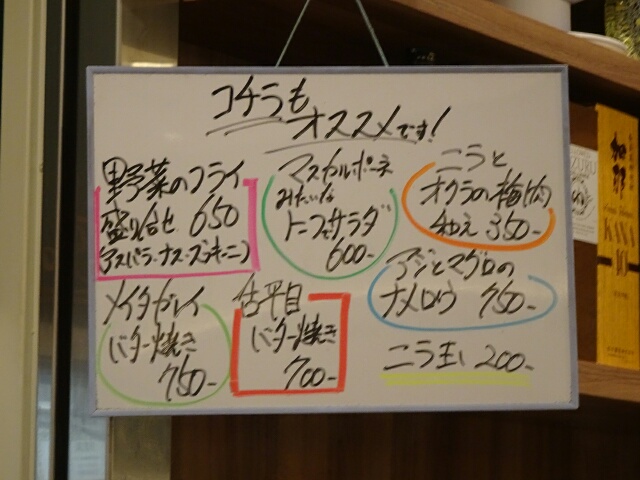 コチラも
オススメです!
野菜のフライ
盛り合せ 650
(アスパラ・ナス・ズッキーニ)
マスカルポーネ
みたいな
トーフサラダ
600-
ニラと
オクラの梅肉
和え 350-
アジとマグロの
ナメロウ 750-
メイタガレイ
バター焼き
750-
舌平目
バター焼き
700-
ニラ玉 200-
KANA
10